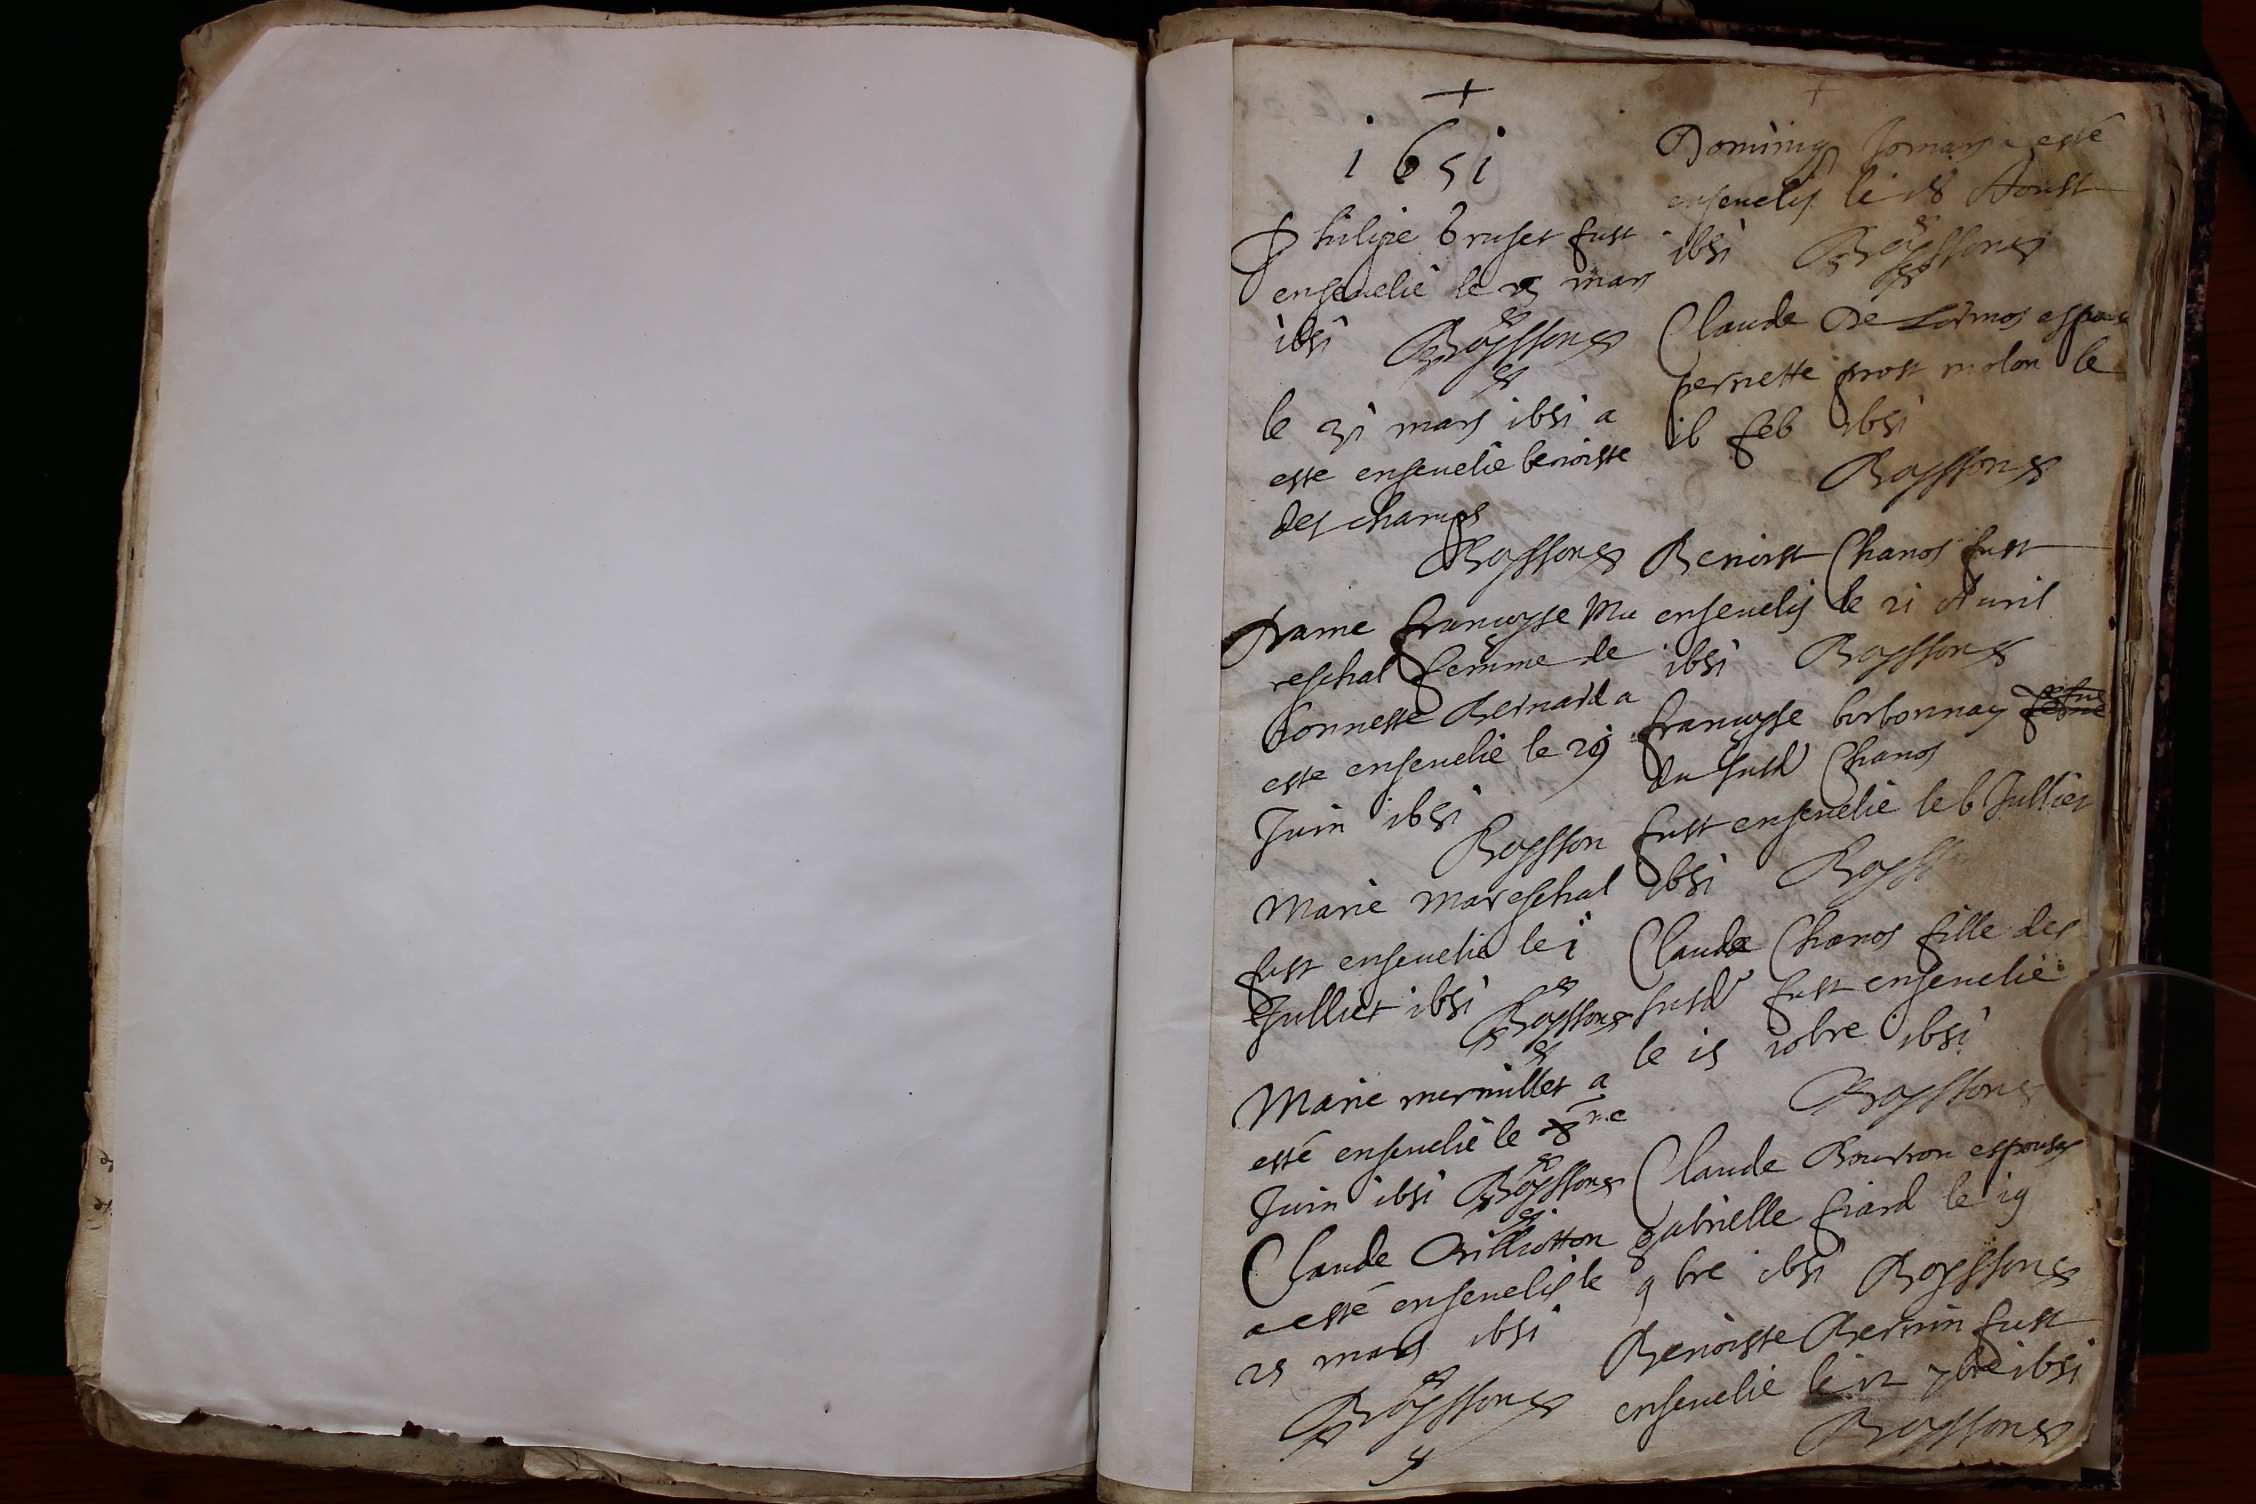 1651
Philipe bruset fust
ensevelie le 15 mars
1651 Boysson
le 31 mars 1651 a
este ensevelie benoiste
des champs
Boysson
Dame francoyse Ma
reschal femme de
honneste Bernard a
este ensevelie le 29
Juin 1651
Boysson
Marie mareschal
fust ensevelie le 1
Julliet 1651 Boysson
Marie mermillet a
esté ensevelie le 8me
Juin 1651 Boysson
Claude
a esté ensevelis le
25 mars 1651
Boysson
Dominiq a esté
ensevelis le 18 Aoust
1651 Boysson
Claude De espousa
pernette prost molon le
16 feb 1651
Boysson
Benoist Chanos fust
ensevelis le 21 Avril
1651 Boysson
francoyse borbonnay
du susd Chanos
fust ensevelie le 6 Julliet
1651 Boysson
Claude Chanos fille des
susd fust ensevelie
le 15 10bre 1651
Boysson
Claude Bourron espousa
gabrielle fiard le 19
9bre 1651 Boysson
Benoiste Bernin fust
ensevelie le 12 7bre 1651
Boysson